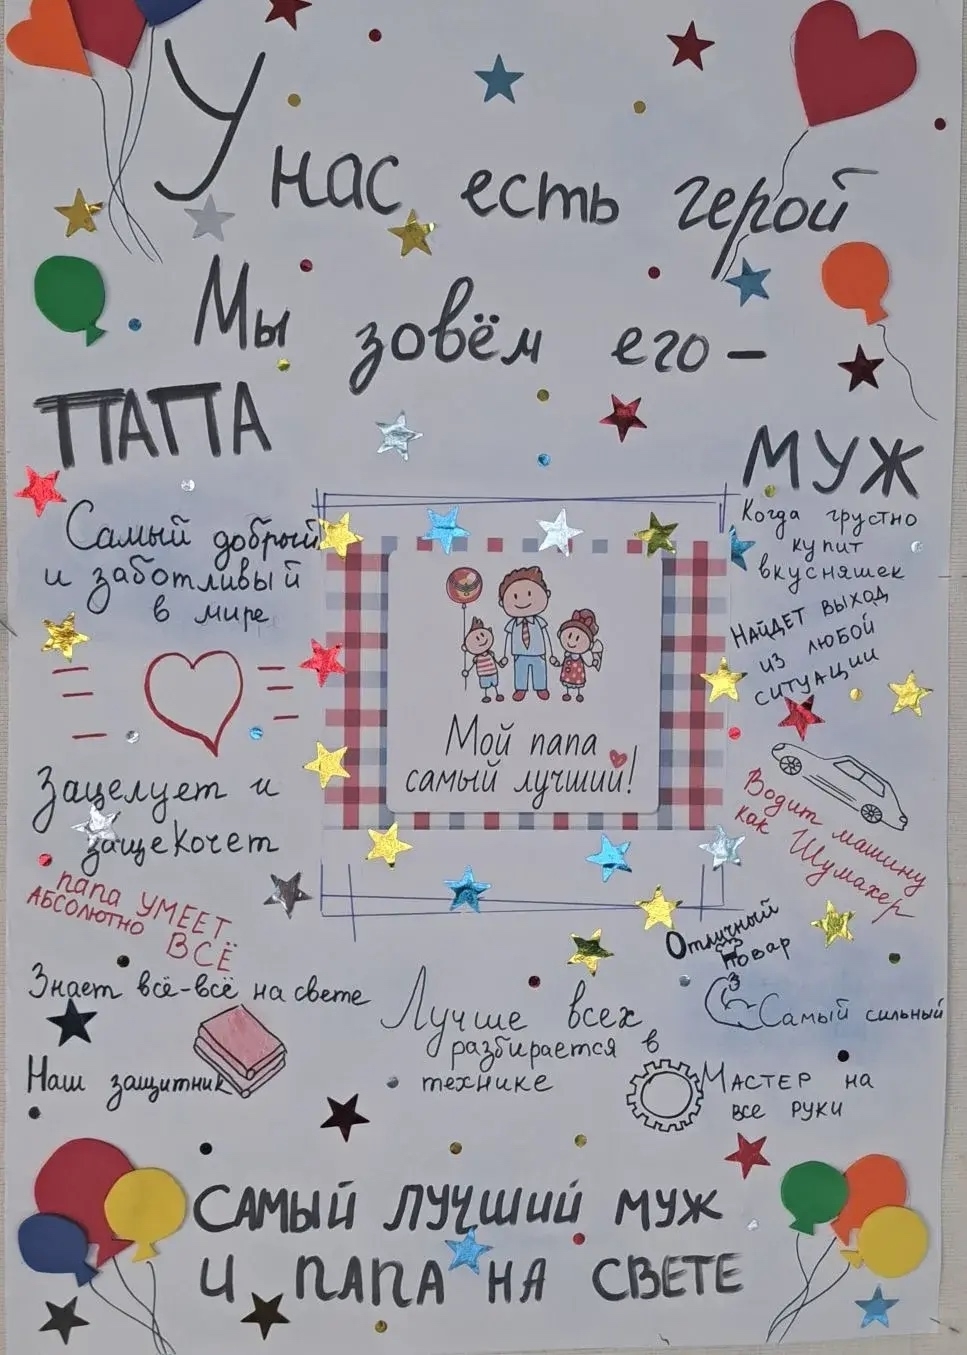 У нас есть герой
Мы зовём его –
ПАПА
Самый добрый
и заботливый
в мире
Зацелует и
защекочет
папа УМЕЕТ
АБСОЛЮТНО ВСЁ
Знает всё-всё на свете
Наш защитник
Мой папа
самый лучший!
МУЖ
Когда грустно
купит
вкусняшек
НАЙДЕТ ВЫХОД
ИЗ ЛЮБОЙ
СИТУАЦИИ
Водит машину
как Шумахер
Отличный
повар
Самый сильный
Лучше всех
разбирается в
технике
МАСТЕР НА
ВСЕ РУКИ
САМЫЙ ЛУЧШИЙ МУЖ
И ПАПА НА СВЕТЕ